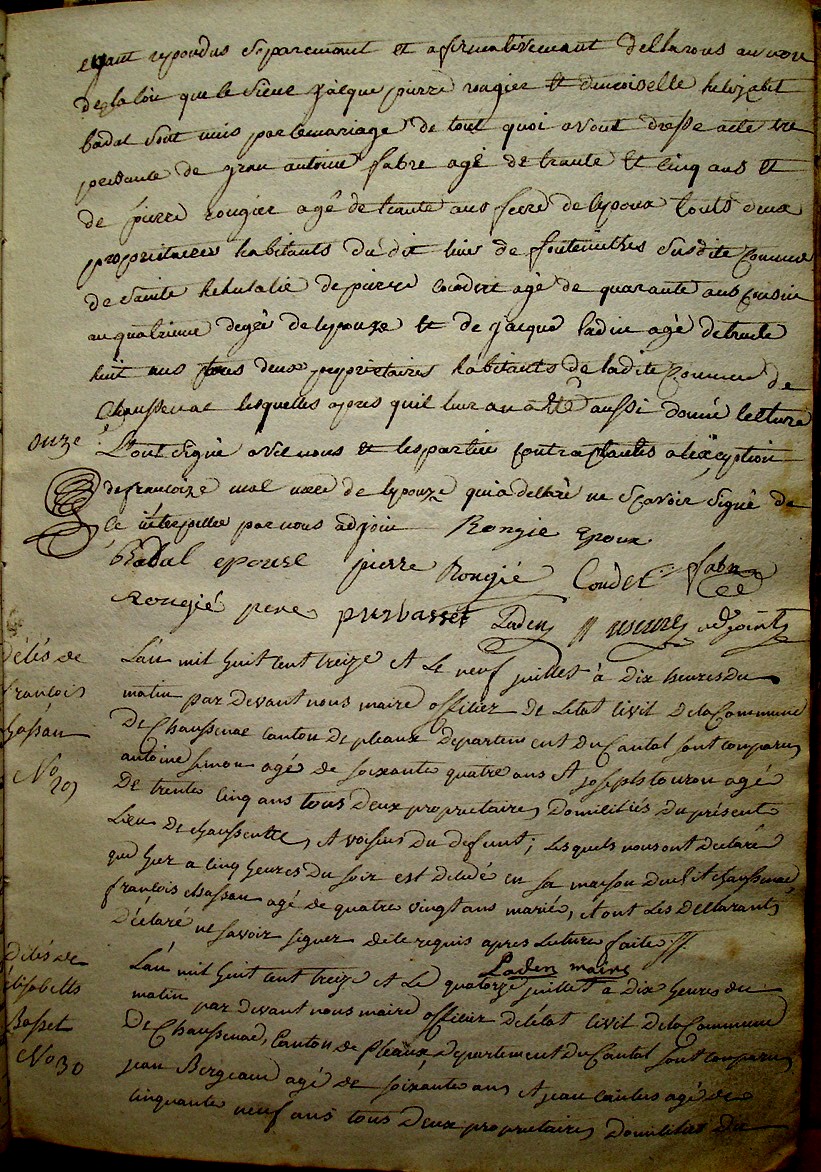 ayant repondus separemant et afirmativemant dellarons au nom
de la loi que le sieur jacque pierre rougier et demoiselle helizabet
badal sont unis par le mariage de tout quoi avont dresse acte en
presance de jean antoine fabre agé de trante et cinq ans et
de pierre rougier agé de trante ans frere de lepoux touts deux
propriétaires habitants du dit lieu de susdite Commune
de Sainte hehulalie de pierre coudert agé de quarante ans cousin
au quatrieme degré de lepouze et de jacque ladin agé de trante
huit ans tous deux propriétaires habitants de ladite Commune de
Chaussenac lesquelles apres quil leur an a été aussi donné lecture
onze
L'ont signé avec nous et les parties contractantes a lexception
de françoize mal mere de lepouze qui a dellaré ne scavoir signé de
ce interpellee par nous adjoin Rougie epoux
Badal epouse pierre Rougié Coudert fabre
Rougié pere Laden adjoint
Décés de
françois
Chassan
No 29
L'an mil huit cent treize et le neuf juillet à dix heures du
matin par devant nous maire officier de létat civil de la Commune
De Chaussenac canton de pleaux departement du Cantal sont comparus
antoine simon agé de soixante quatre ans et joseph touron agé
De trente cinq ans tous deux propriétaires, domiciliés du présent
Lieu de chaussenac, et voisins du defunt; lesquels nous ont déclaré
que hier a cinq heures du soir est décédé en sa maison dud. chaussenac
françois chassan agé de quatre vingt ans marié, et ont les declarants
Déclaré ne savoir signer de ce requis apres lecture faite
Laden maire
Décés de
elisabette
Basset
No 30
L'an mil huit cent treize et le quatorze juillet à dix heures du
matin par devant nous maire officier de létat civil de la Commune
De Chaussenac, Canton de Pleaux, departement du Cantal sont comparus
jean Bergeaud agé de soixante ans et jean agé de
cinquante neuf ans tous deux propriétaires domiciliés du